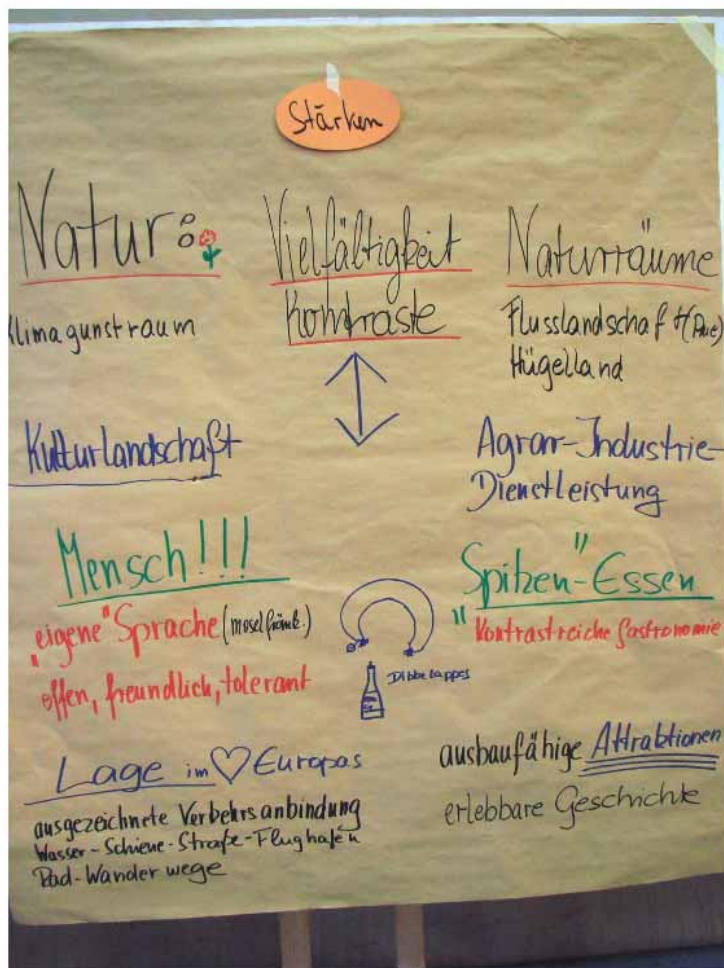 Stärken
Natur:
Klimagunstraum
Vielfältigkeit
Kontraste
Naturräume
Flusslandschaft (Aue)
Hügelland
Kulturlandschaft
Agrar-Industrie-
Dienstleistung
Mensch!!!
"eigene" Sprache (moselfränk.)
offen, freundlich, tolerant
Dibbelappes
"Spitzen"-Essen
Kontrastreiche Gastronomie
Lage im ♡ Europas
ausgezeichnete Verkehrsanbindung
Wasser-Schiene-Straße-Flughafen
Rad-Wanderwege
ausbaufähige Attraktionen
erlebbare Geschichte